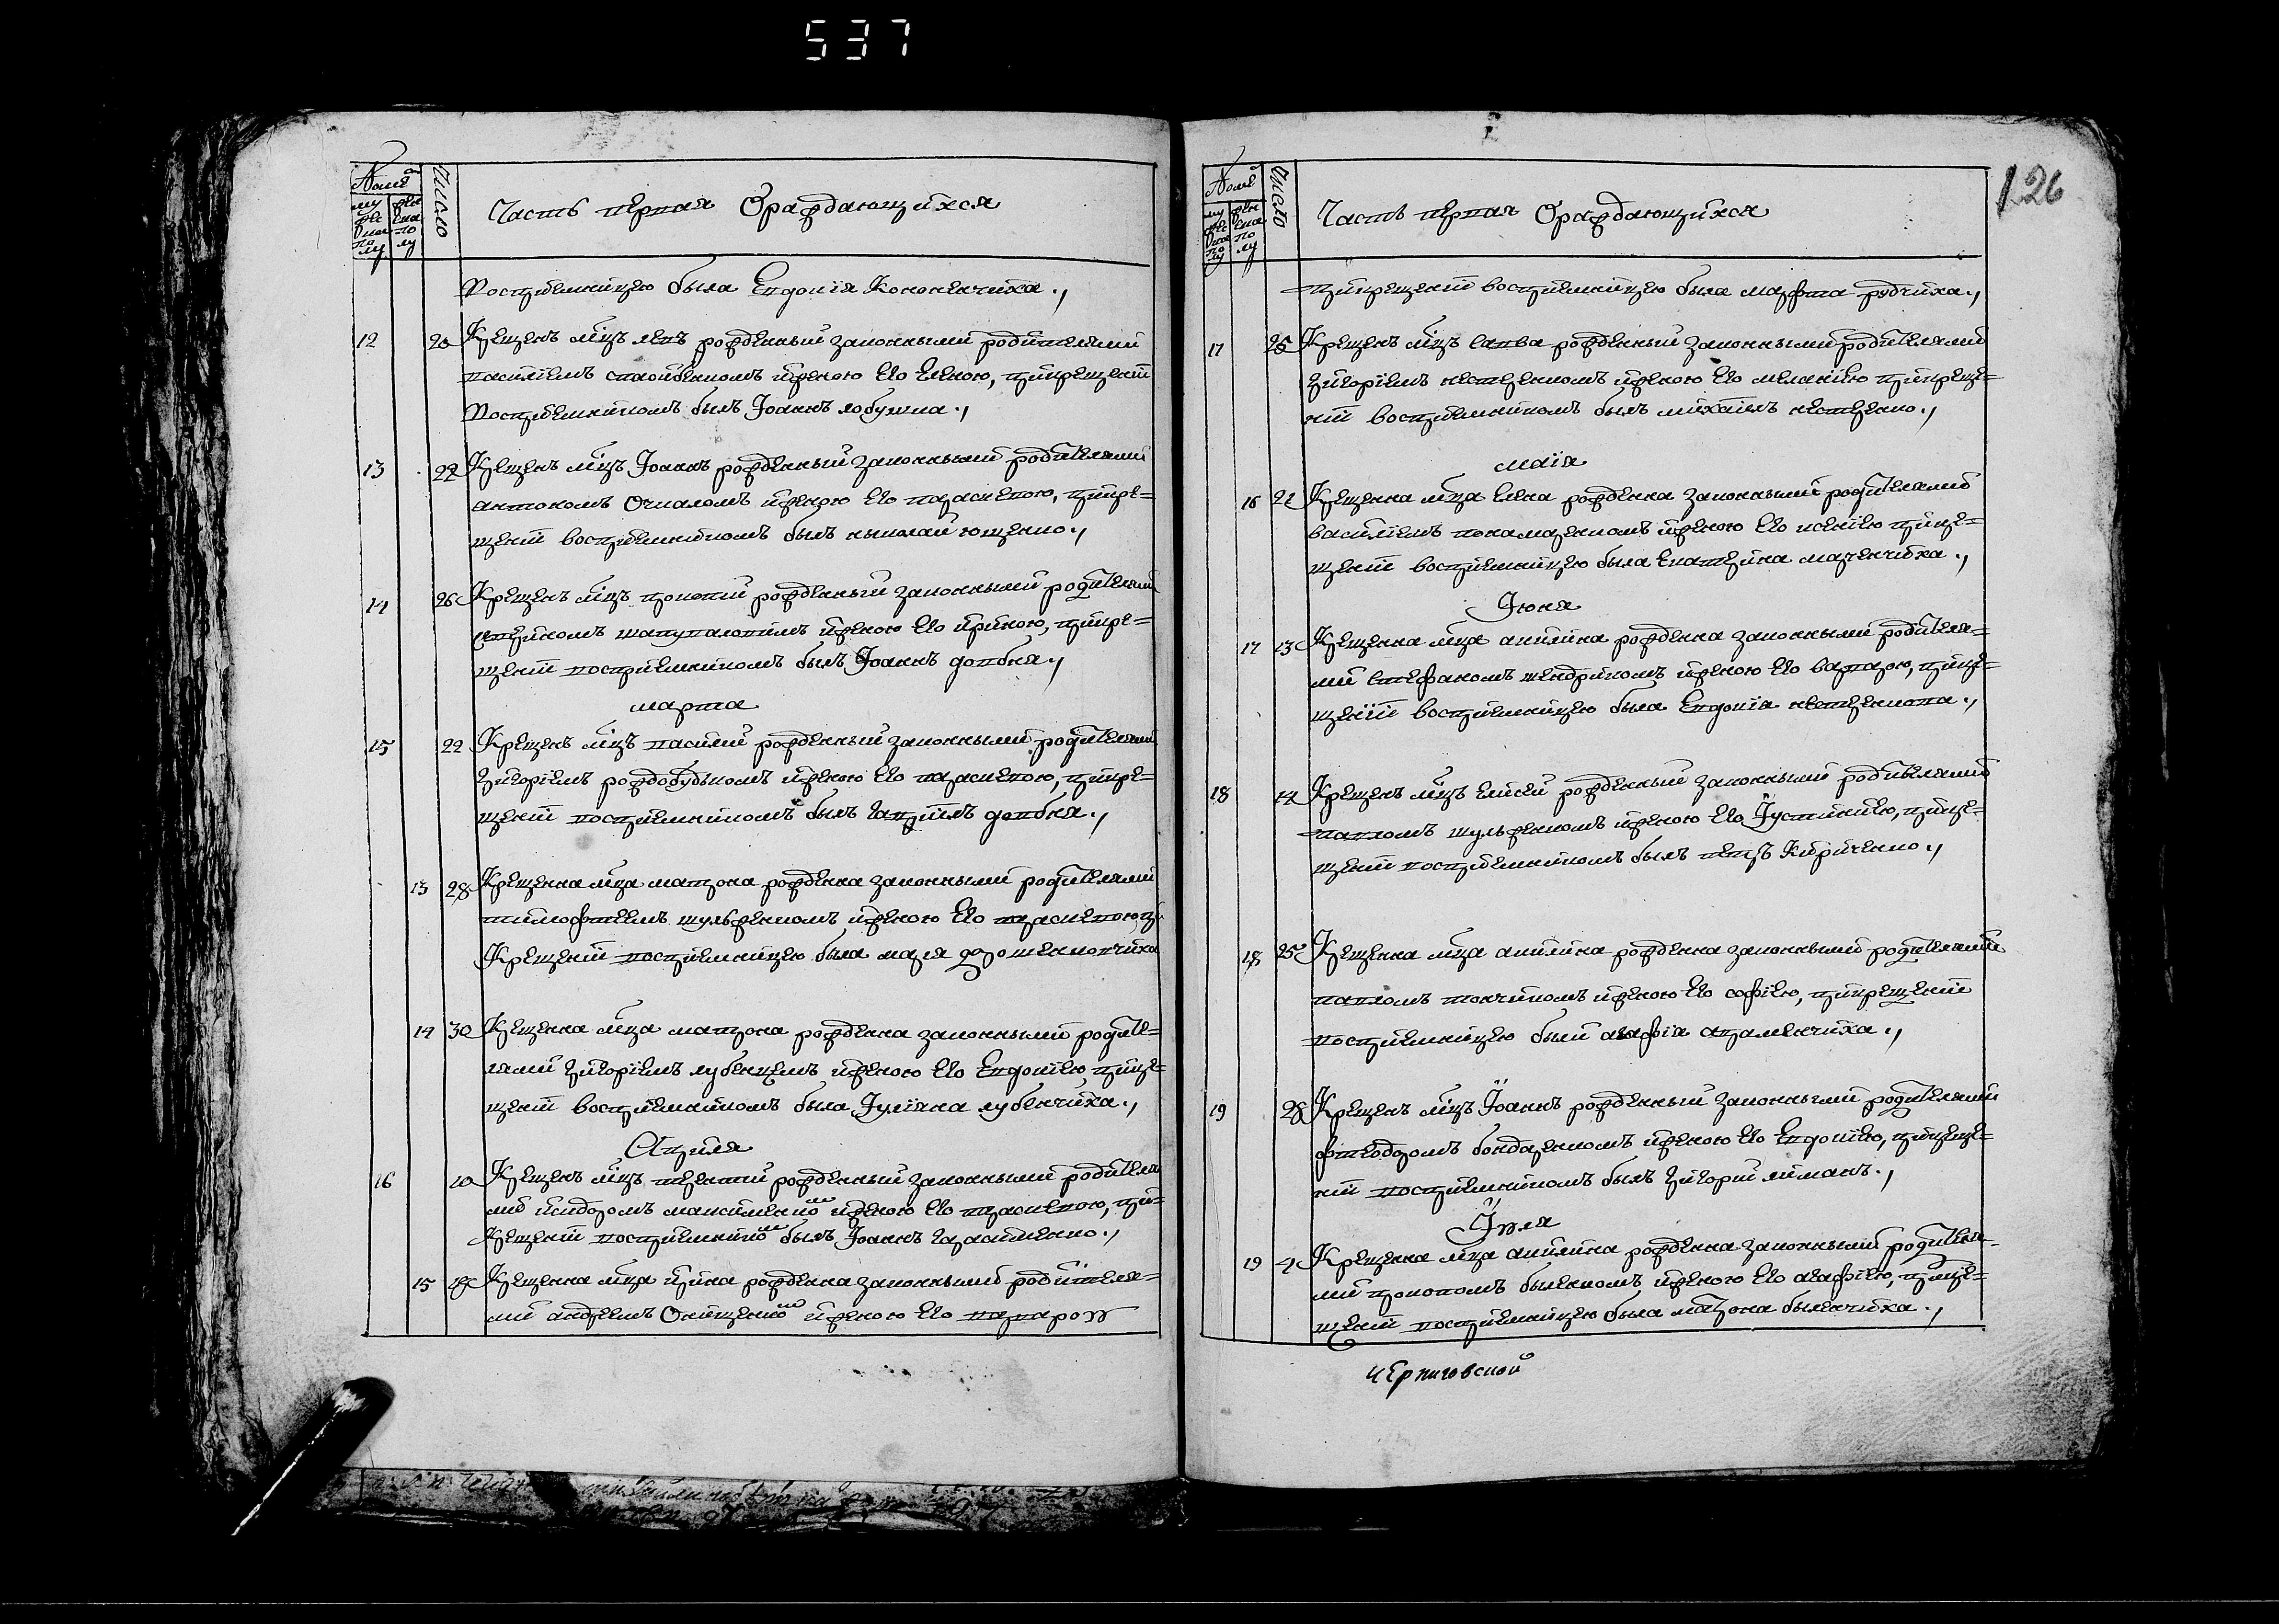 537
Номеръ
мужескаполу
женскаполу
Число
Часть первая Ораждающихся
воспрiемницею была Евдокiя Кононенчиха.,
12 20 Крещенъ мцъ левъ рожденный законными родителями
василiемъ женою его Еленою, прикрещенiи
воспрiемникомъ былъ Iоаннъ лобушка.,
13 22 Крещенъ мцъ Iоаннъ рожденный законными родителями
антономъ Очкаломъ женою его параскевою, прикре=
щенiи воспрiемникомъ былъ николай ющенко.,
14 26 Крещенъ мцъ прокопiй рожденный законными родителями
женою его Ириною, прикре=
щенiи воспрiемникомъ былъ Iоаннъ довбня.,
марта
15 22 Крещенъ мцъ василiй рожденный законными родителями
григорiемъ женою его параскевою, прикре=
щенiи воспрiемникомъ былъ гаврiилъ довбня.,
13 28 Крещенна мца матрона рожденна законными родителями
тимофтеемъ шульженкомъ женою его параскевою, при
Крещенiи воспрiемницею была марiя
14 30 Крещенна мца матрона рожденна законными родите=
лями григорiемъ лубенцемъ женою его Евдокiею прикре=
щенiи воспрiемникомъ была Iулiяна лубенчиха.,
Априля
16 10 Крещенъ мцъ терентiй рожденный законными родителя
ми исидоромъ максименкомъ женою его параскевою, при=
Крещенiи воспрiемникомъ былъ Iоаннъ герасименко.,
15 18 Крещенна мца ирина рожденна законными родителя=
ми андреемъ Онищенкомъ женою его варварою
126
Номеръ
мужескаполу
женскаполу
Число
Часть первая Ораждающихся
прикрещенiи воспрiемницею была марфта рэдчиха.,
17 25 Крещенъ мцъ савва рожденный законными родителями
григорiемъ нестеренкомъ женою его меланiею прикреще=
нiи воспрiемникомъ былъ михаилъ нестеренко.,
маiя
16 21 Крещенна мца елена рожденна законными родителями
василiемъ понамаренкомъ женою его ксенiею прикре=
щенiи воспрiемницею была Екатерина марченчиха.,
Iюня
17 13 Крещенна мца акилина рожденна законными родителя=
ми стефаномъ шендрикомъ женою его варварою, прикре=
щенiи воспрiемницею была Евдокiя нестеренкова.,
18 14 Крещенъ мцъ елисей рожденный законными родителями
павломъ шульженкомъ женою его Iустинiею, прикре=
щенiи воспрiемникомъ былъ петръ Кириченко.,
18 25 Крещенна мца акилина рожденна законными родителями
павломъ женою его софiею, прикрещенiи
воспрiемницею были агафiя авраменчиха.,
19 28 Крещенъ мцъ Iоаннъ рожденный законными родителями
фтеодоромъ бондаренкомъ женою его Евдокiею, прикреще=
нiи воспрiемникомъ былъ григорiй лиманъ.,
Iуля
19 4 Крещенна мца акилина рожденна законными родителя=
ми прокопомъ быленкомъ женою его агафiею, прикре=
щенiи воспрiемницею была матрона быленчиха.,
черниговской